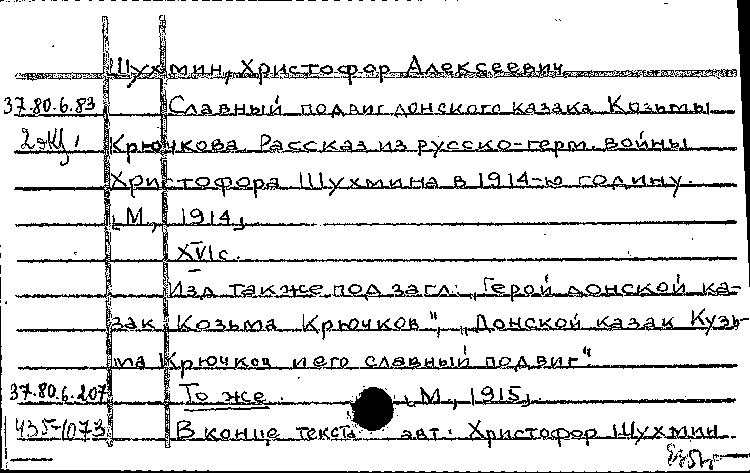 Шухмин, Христофор Алексеевич.
37.80.6.83 Славный подвиг донского казака Козьмы
Крючкова. Рассказ из русско-герм. войны
Христофора Шухмина в 1914-ю годину.
[М., 1914]
XVI с.
Изд. также под загл.: "Герой донской ка-
зак Козьма Крючков", "Донской казак Кузь-
ма Крючков и его славный подвиг".
37.80.6.207 То же. [М., 1915].
435-1073 В конце текста авт.: Христофор Шухмин